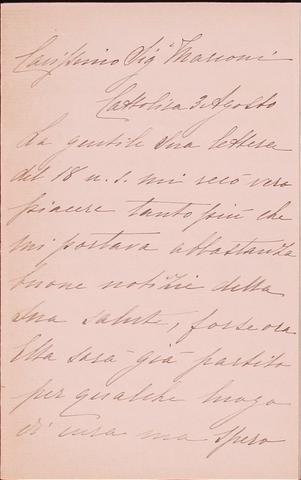 Carissimo Sig.r Marconi
Cattolica 3 Agosto
La gentile Sua lettera
del 18 u. s. mi recò vero
piacere tanto più che
mi portava abbastanza
buone notizie della
Sua salute, forse ora
Ella sarà già partito
per qualche luogo
di cura ma spero